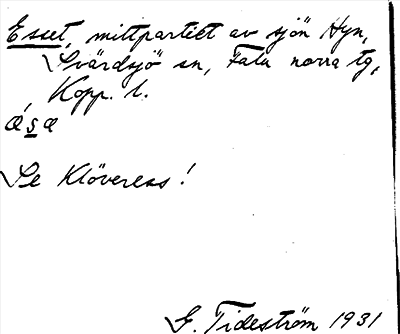 Esset, mittpartiet av sjön Hyn,
Svärdsjö sn, Falu norra tg,
Kopp. l.
ǽsæ
Se Klöveress!
G. Tideström 1931